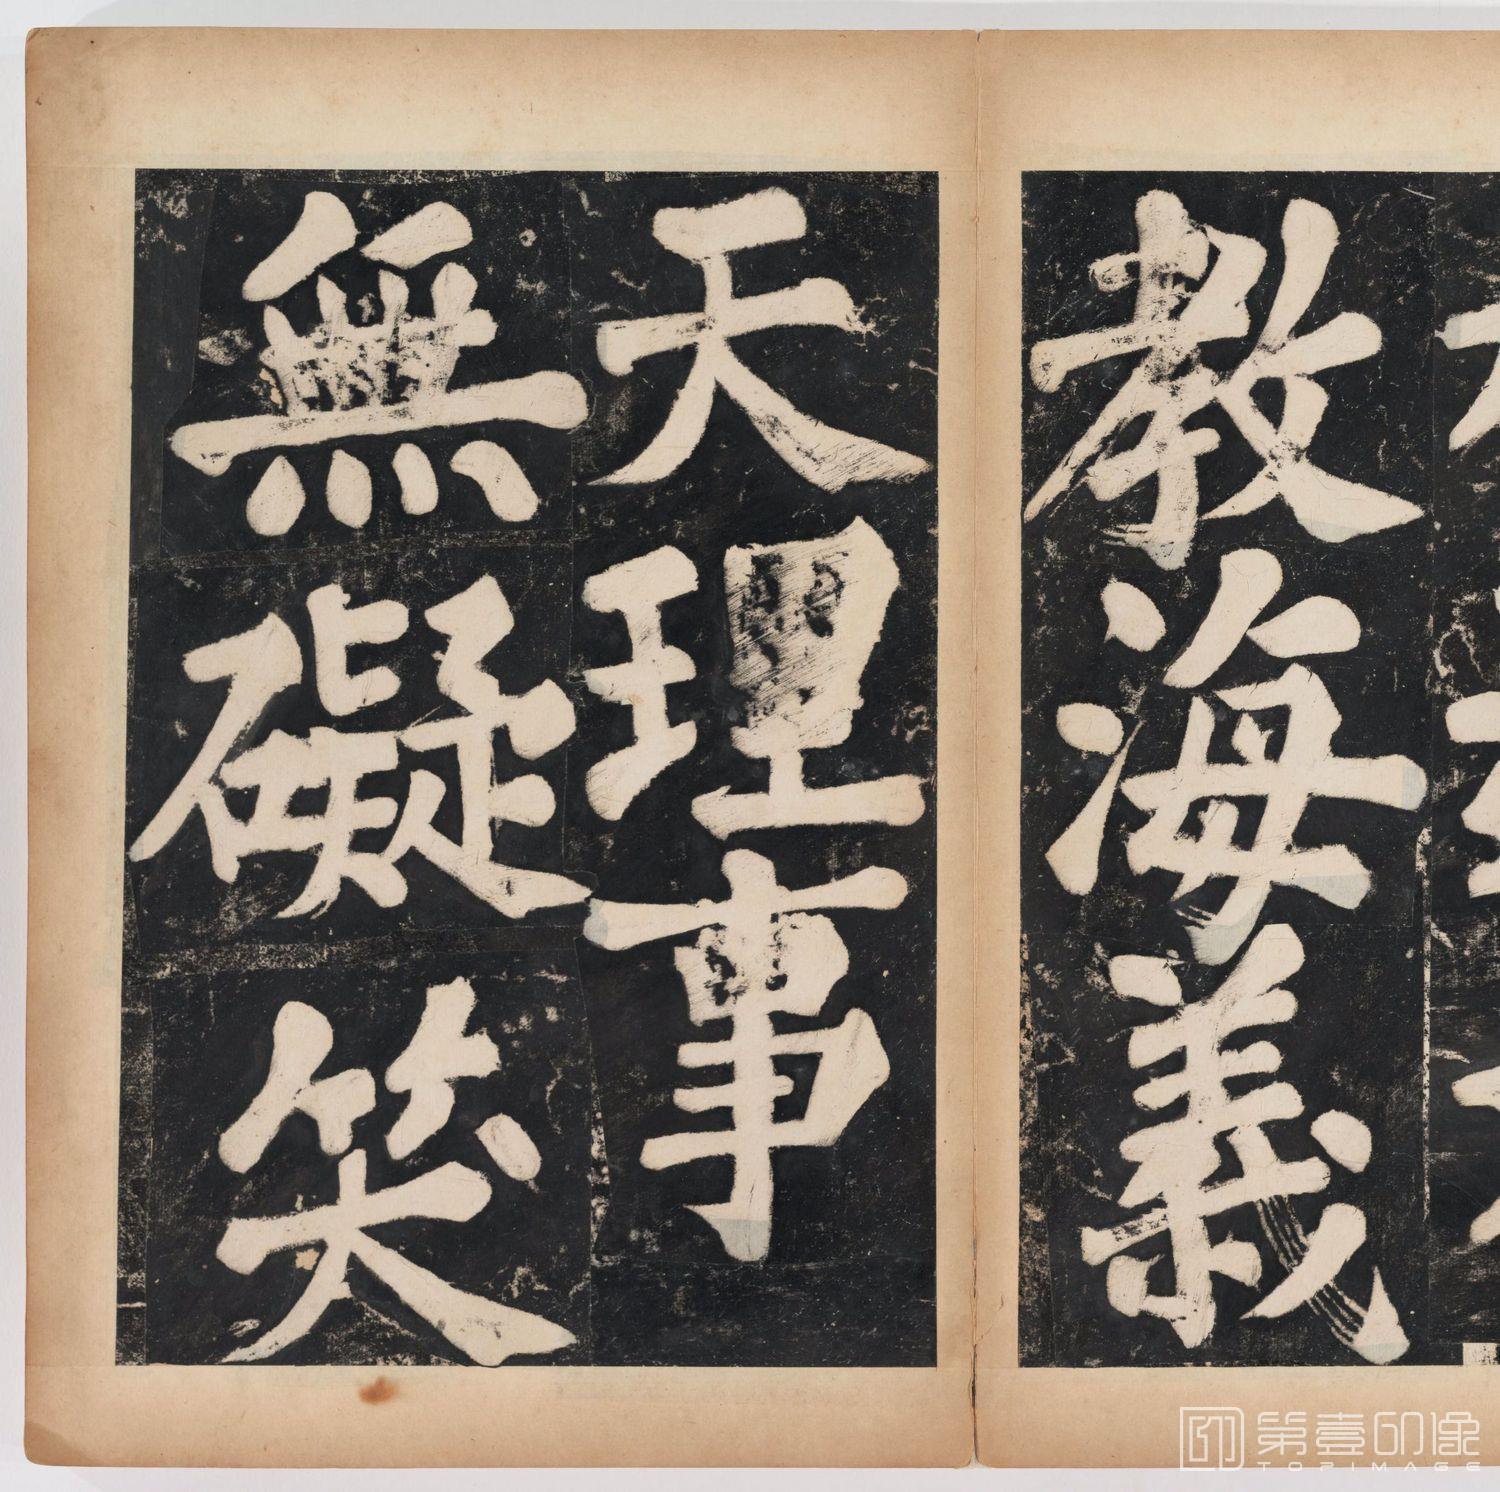 教海義
天理事
無礙笑
第壹印像
TOPIMAGE